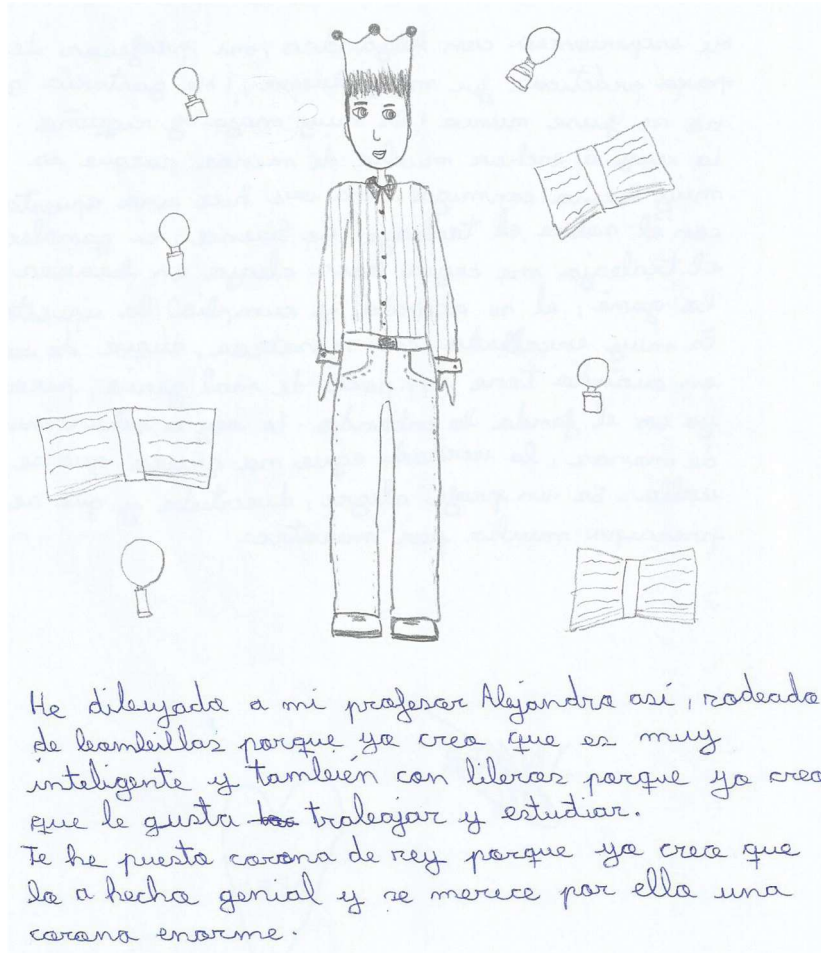 He dibujado a mi profesor Alejandro así, rodeado
de bombillas porque yo creo que es muy
inteligente y también con libros porque yo creo
que le gusta trabajar y estudiar.
Te he puesto corona de rey porque yo creo que
lo a hecho genial y se merece por ello una
corona enorme.